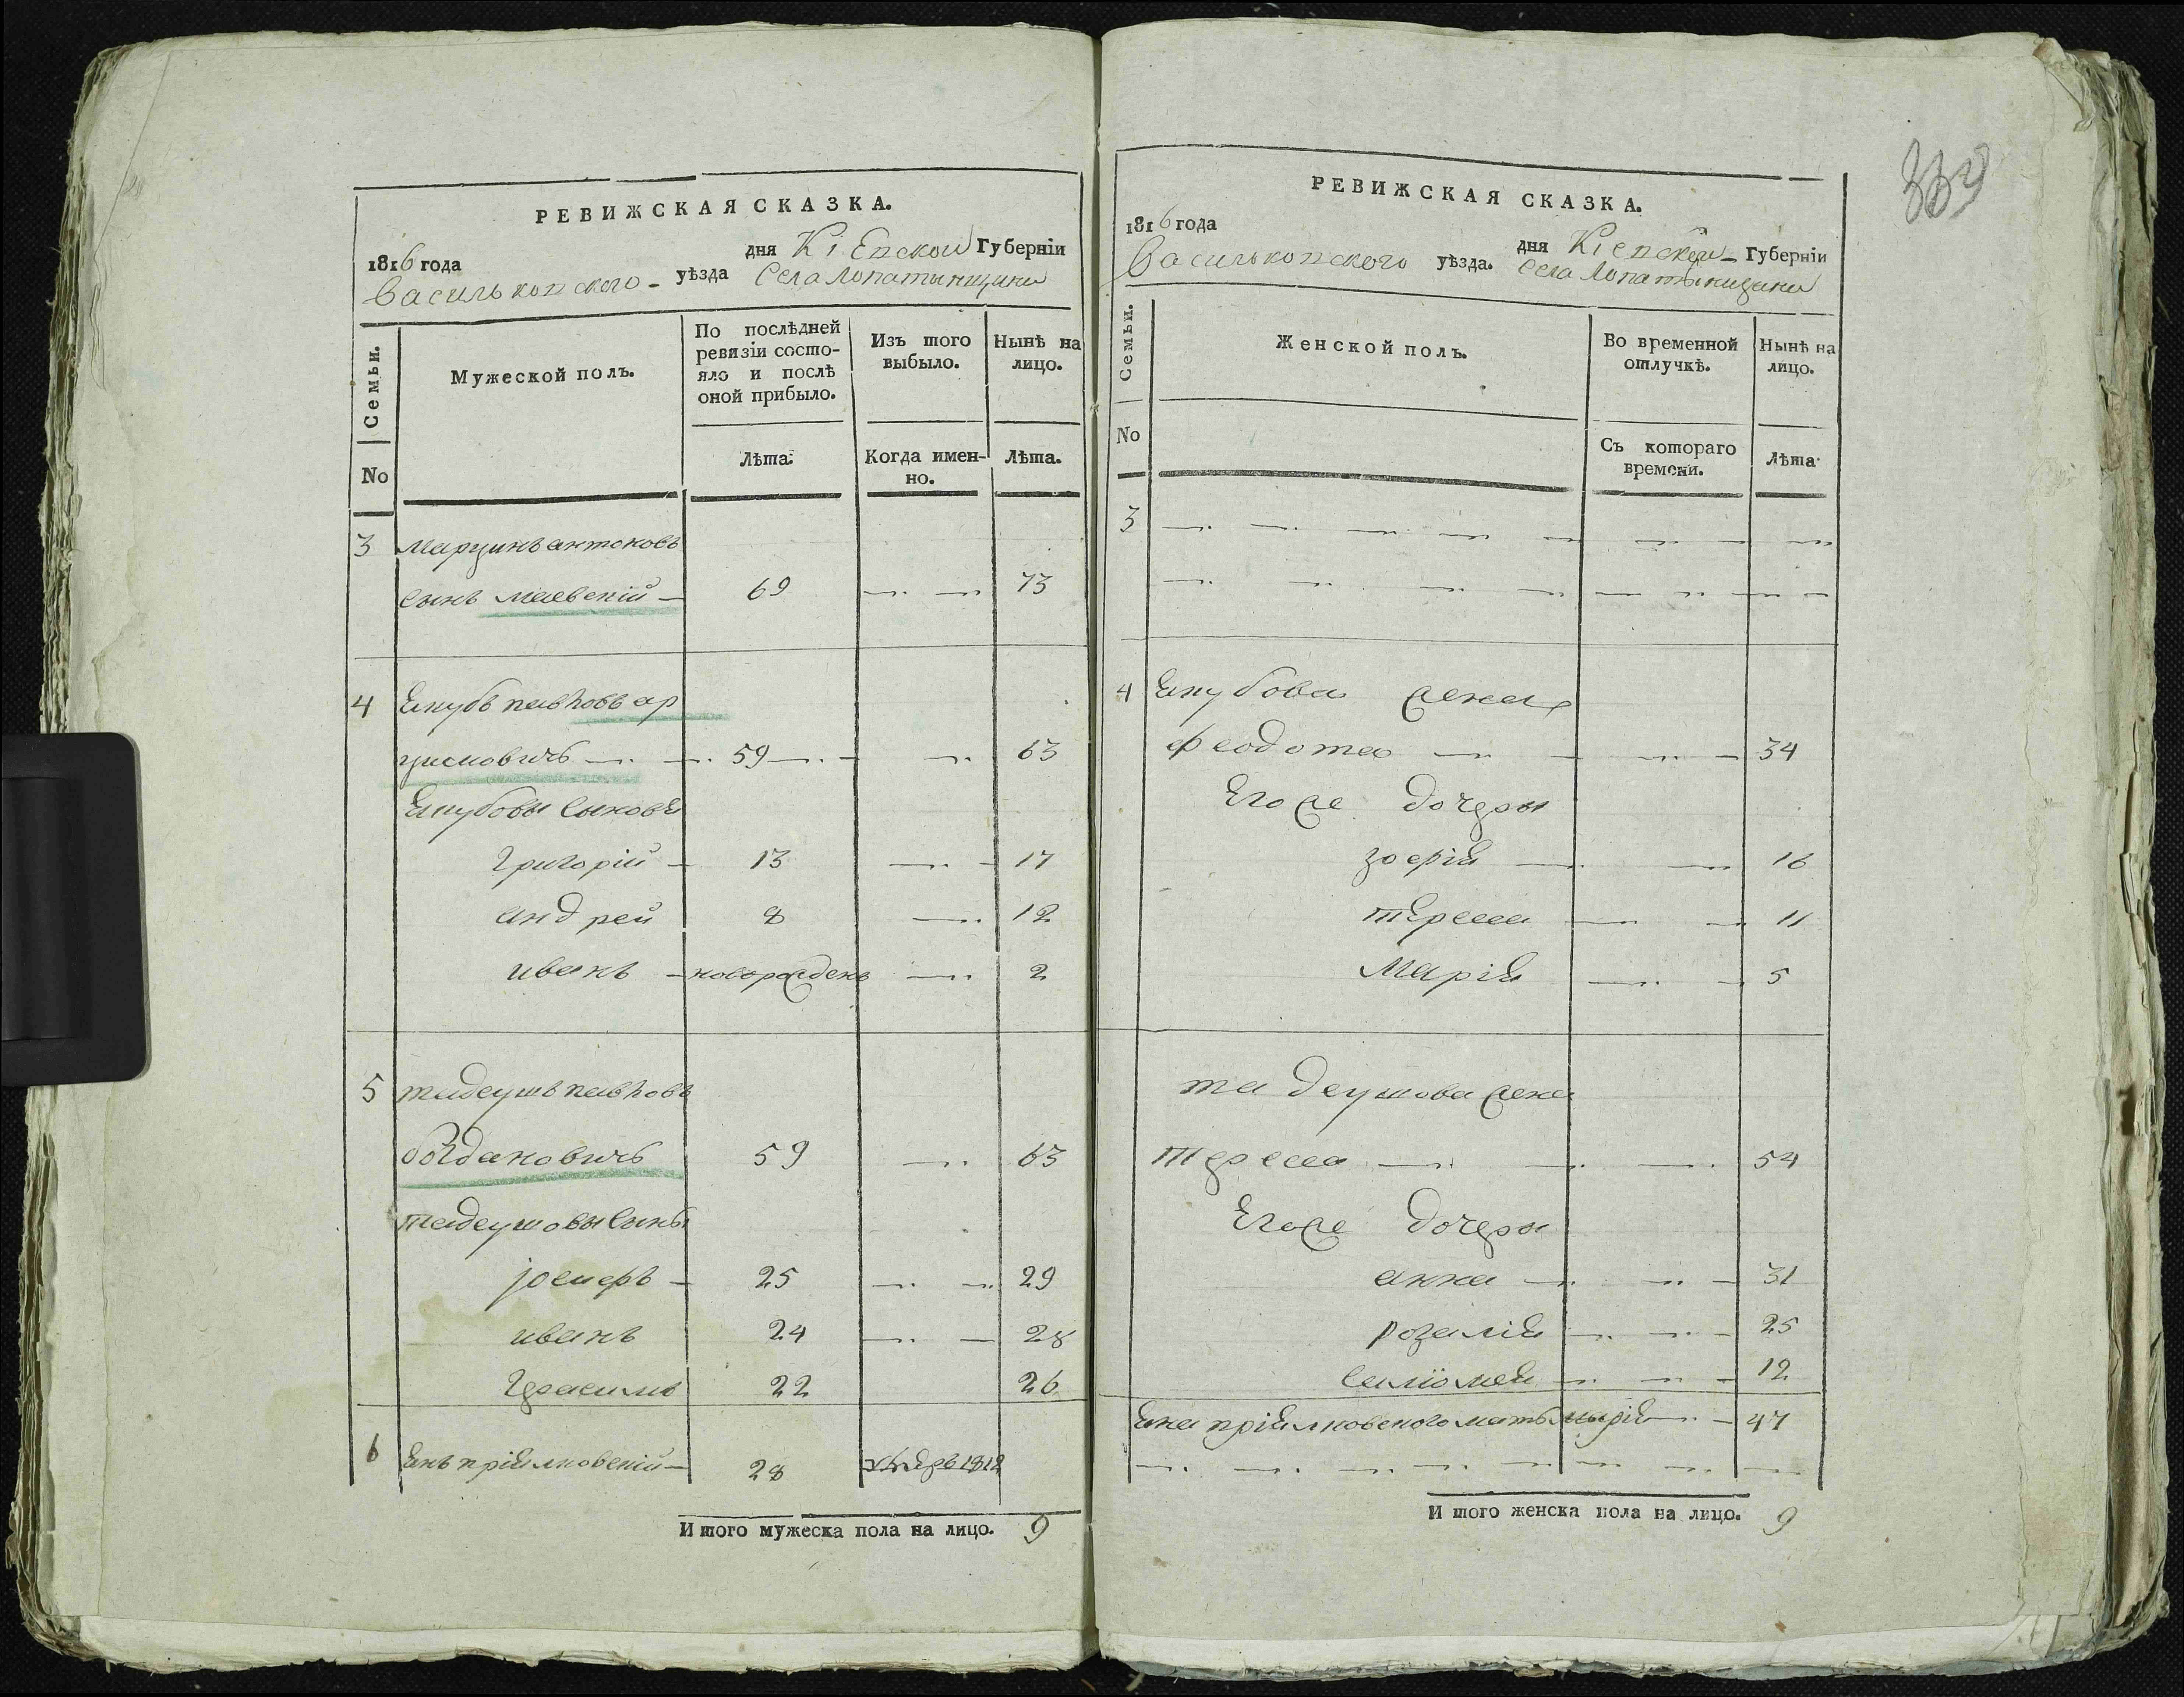 РЕВИЖСКАЯ СКАЗКА.
1816 года дня Кіевской Губерніи
Васильковского уѣзда Села Лопатынщины
Семьи.
No
Мужеской полъ.
По послѣдней
ревизіи состо-
яло и послѣ
оной прибыло.
Лѣта.
Изъ того
выбыло.
Когда имен-
но.
Нынѣ на
лицо.
Лѣта.
3 Марцинъ антоновъ
сынъ маевскій 69 73
4 Якубъ павловъ яр
цисковичъ 59 63
Якубовы сыновя
григорій 13 17
андрей 8 12
иванъ новорожденъ 2
5 тадеушъ павловъ
богдановичъ 59 63
тадеушовы сыны
іосифъ 25 29
иванъ 24 28
герасимъ 22 26
6 Янъ пріялковскій 28 1812
Итого мужеска пола на лицо. 9
РЕВИЖСКАЯ СКАЗКА.
1816 года дня Кіевской Губерніи
Васильковского уѣзда. Села Лопатынщины
Семьи.
No
Женской полъ.
Во временной
отлучкѣ.
Съ котораго
времени.
Нынѣ на
лицо.
Лѣта
3
4 Якубова жена
феодота 34
Егоже дочеры
зофія 16
тереса 11
Марія 5
тадеушова жена
тереса 54
Егоже дочеры
анна 31
розалія 25
саліомея 12
Яна пріялковского мать марія 47
Итого женска пола на лицо. 9